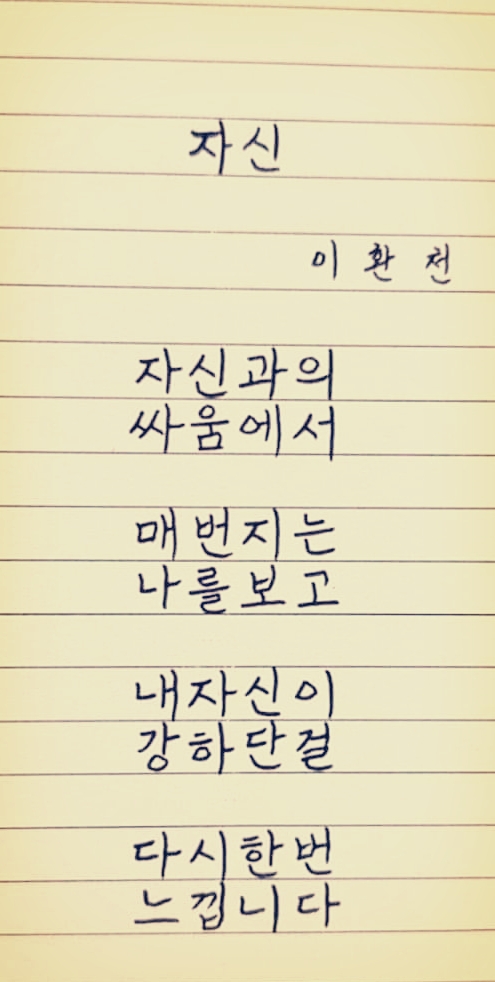 자신
이 환 천
자신과의
싸움에서
매번지는
나를보고
내자신이
강하단걸
다시한번
느낍니다